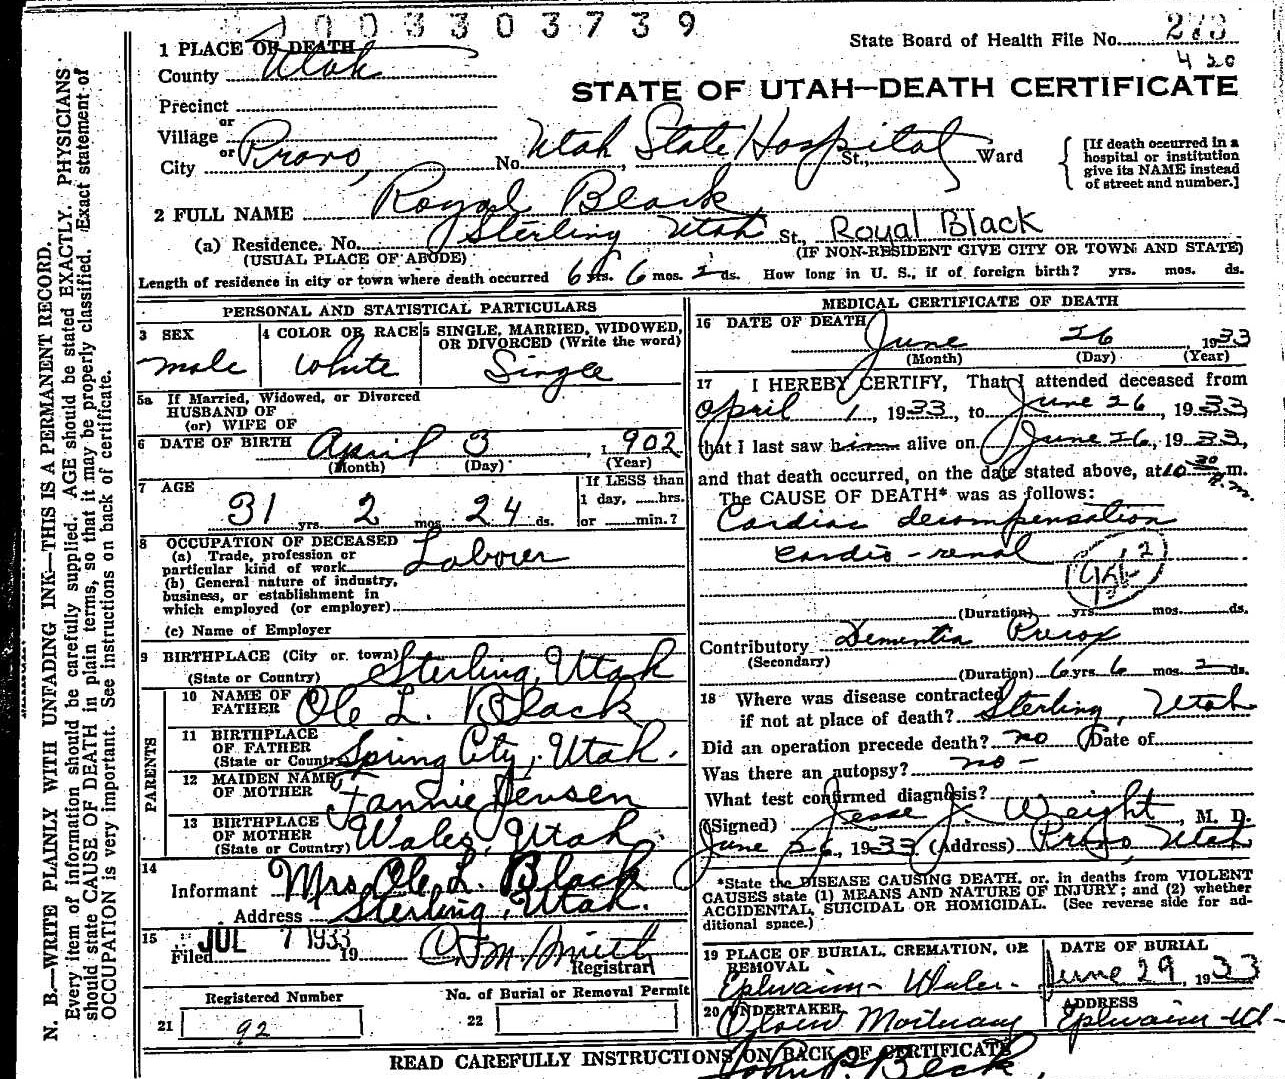 1003303739
State Board of Health File No. 273
420
STATE OF UTAH—DEATH CERTIFICATE
1 PLACE OF DEATH
County Utah
Precinct
or
Village
or
City Provo, No. Utah State Hospital St., Ward
[If death occurred in a hospital or institution give its NAME instead of street and number.]
2 FULL NAME Royal Black
(a) Residence. No. Sterling Utah St., Royal Black
(USUAL PLACE OF ABODE) (IF NON-RESIDENT GIVE CITY OR TOWN AND STATE)
Length of residence in city or town where death occurred 6 yrs. 6 mos. 2 ds. How long in U. S., if of foreign birth? yrs. mos. ds.
PERSONAL AND STATISTICAL PARTICULARS
3 SEX
male
4 COLOR OR RACE
White
5 SINGLE, MARRIED, WIDOWED, OR DIVORCED (Write the word)
Single
5a If Married, Widowed, or Divorced
HUSBAND OF
(or) WIFE OF
6 DATE OF BIRTH April 3, 1902
(Month) (Day) (Year)
7 AGE
31 yrs. 2 mos. 24 ds.
If LESS than
1 day, ......hrs.
or ......min.?
8 OCCUPATION OF DECEASED
(a) Trade, profession or
particular kind of work Laborer
(b) General nature of industry,
business, or establishment in
which employed (or employer)
(c) Name of Employer
9 BIRTHPLACE (City or town)
(State or Country) Sterling, Utah
PARENTS
10 NAME OF
FATHER Ole L. Black
11 BIRTHPLACE
OF FATHER
(State or Country) Spring City, Utah.
12 MAIDEN NAME
OF MOTHER Fannie Jensen
13 BIRTHPLACE
OF MOTHER
(State or Country) Wales, Utah
14
Informant Mrs. Ole L. Black
Address Sterling, Utah.
15
Filed JUL 7 1933 19
Registrar
Registered Number
21 92
No. of Burial or Removal Permit
22
MEDICAL CERTIFICATE OF DEATH
16 DATE OF DEATH
June 26, 1933
(Month) (Day) (Year)
17 I HEREBY CERTIFY, That I attended deceased from
April 1, 1933, to June 26, 1933
that I last saw him alive on June 26, 1933,
and that death occurred, on the date stated above, at 10 30 P.m. m.
The CAUSE OF DEATH* was as follows:
Cardiac decompensation
cardio-renal
(Duration) yrs. mos. ds.
Contributory Dementia Precox
(Secondary)
(Duration) 6 yrs. 6 mos. 2 ds.
18 Where was disease contracted
if not at place of death? Sterling, Utah
Did an operation precede death? no Date of
Was there an autopsy? no -
What test confirmed diagnosis?
(Signed) Jesse J. Weight, M. D.
June 26, 1933 (Address) Provo, Utah
*State the DISEASE CAUSING DEATH, or, in deaths from VIOLENT
CAUSES state (1) MEANS AND NATURE OF INJURY; and (2) whether
ACCIDENTAL, SUICIDAL OR HOMICIDAL. (See reverse side for ad-
ditional space.)
19 PLACE OF BURIAL, CREMATION, OR
REMOVAL
Ephraim -
DATE OF BURIAL
June 29, 1933
20 UNDERTAKER
Mortuary
ADDRESS
Ephraim - Ut -
READ CAREFULLY INSTRUCTIONS ON BACK OF CERTIFICATE
John P. Beck
N. B.—WRITE PLAINLY WITH UNFADING INK—THIS IS A PERMANENT RECORD.
Every item of information should be carefully supplied. AGE should be stated EXACTLY. PHYSICIANS
should state CAUSE OF DEATH in plain terms, so that it may be properly classified. Exact statement of
OCCUPATION is very important. See instructions on back of certificate.